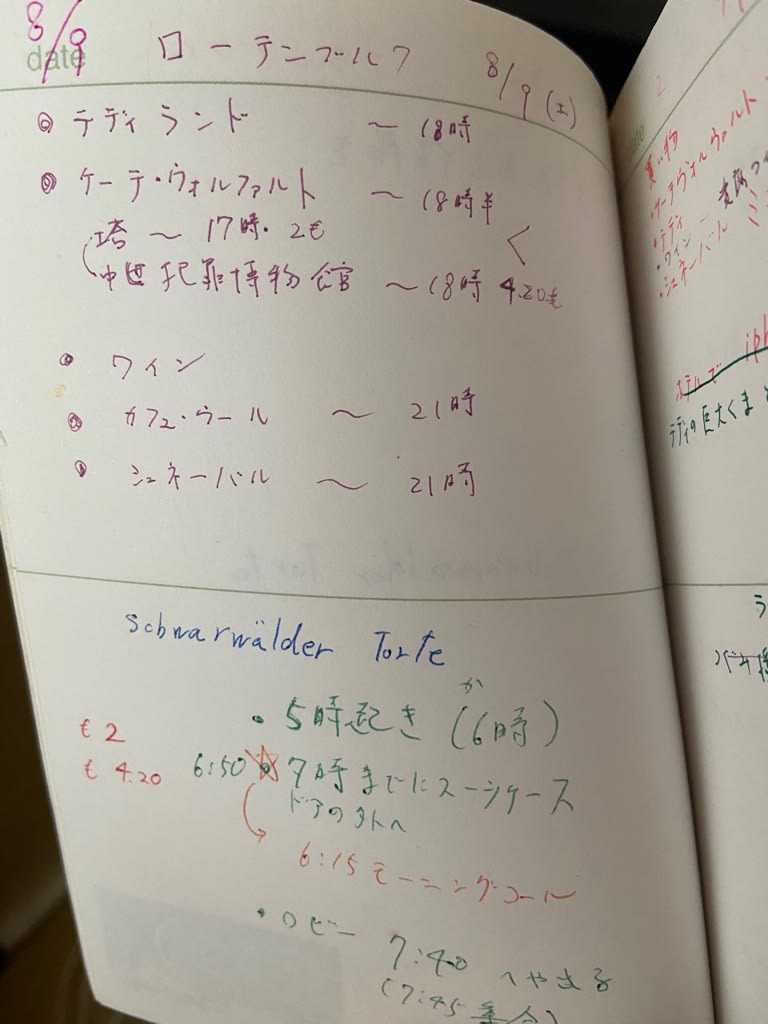 8/9
date
ローテンブルク 8/9(土)
◎ テディランド ～18時
◎ ケーテ・ウォルファルト ～18時半
塔 ～ 17時・2€
中世犯罪博物館 ～18時 4.20€
• ワイン
◎ カフェ・ウール ～ 21時
◎ シュネーバル ～ 21時
Schwarwälder Torte
• 5時起き(か6時)
€2
€4.20
6:50 7時までにスーツケース
ドアの外へ
6:15モーニングコール
• ロビー
7:40 へや出る
(7:45 集合)
2
買い物
・ケーテヴォルヴァルト
・テディ
・ワイン
・シュネーバル
ホテルで
テディの巨大くま